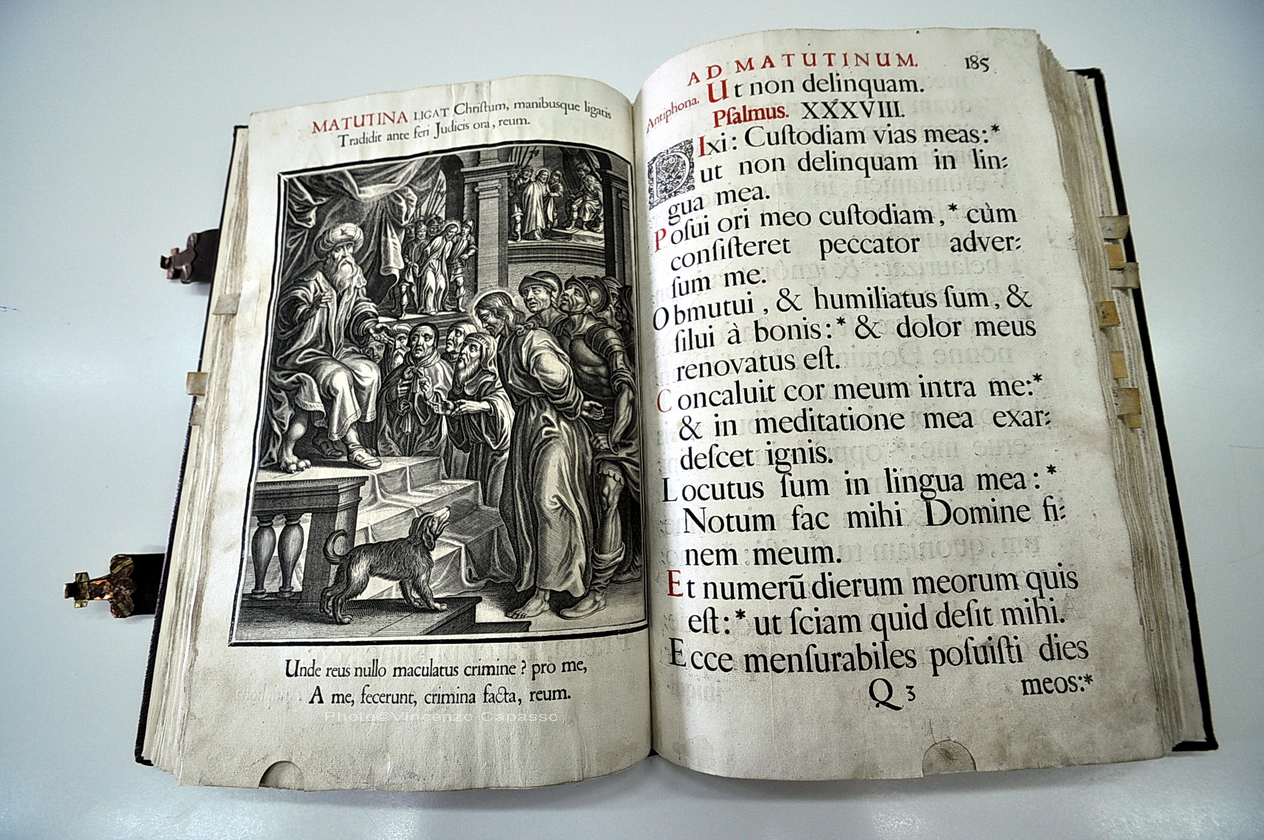 MATUTINA LIGAT Chriſtum, manibusque ligatis
Tradidit ante feri Judicis ora, reum.
Unde reus nullo maculatus crimine? pro me,
A me, fecerunt, crimina facta, reum.
Photo©Vincenzo Capasso
AD MATUTINUM. 185
Antiphona. Ut non delinquam.
Pſalmus. XXXVIII.
DIxi: Cuſtodiam vias meas:*
ut non delinquam in lin⸗
gua mea.
Poſui ori meo cuſtodiam,* cùm
conſiſteret peccator adver⸗
ſum me.
Obmutui, & humiliatus ſum, &
ſilui à bonis:* & dolor meus
renovatus eſt.
Concaluit cor meum intra me:*
& in meditatione mea exar⸗
deſcet ignis.
Locutus ſum in lingua mea:*
Notum fac mihi Domine fi⸗
nem meum.
Et numerū dierum meorum quis
eſt:* ut ſciam quid deſit mihi.
Ecce menſurabiles poſuiſti dies
Q 3 meos:*